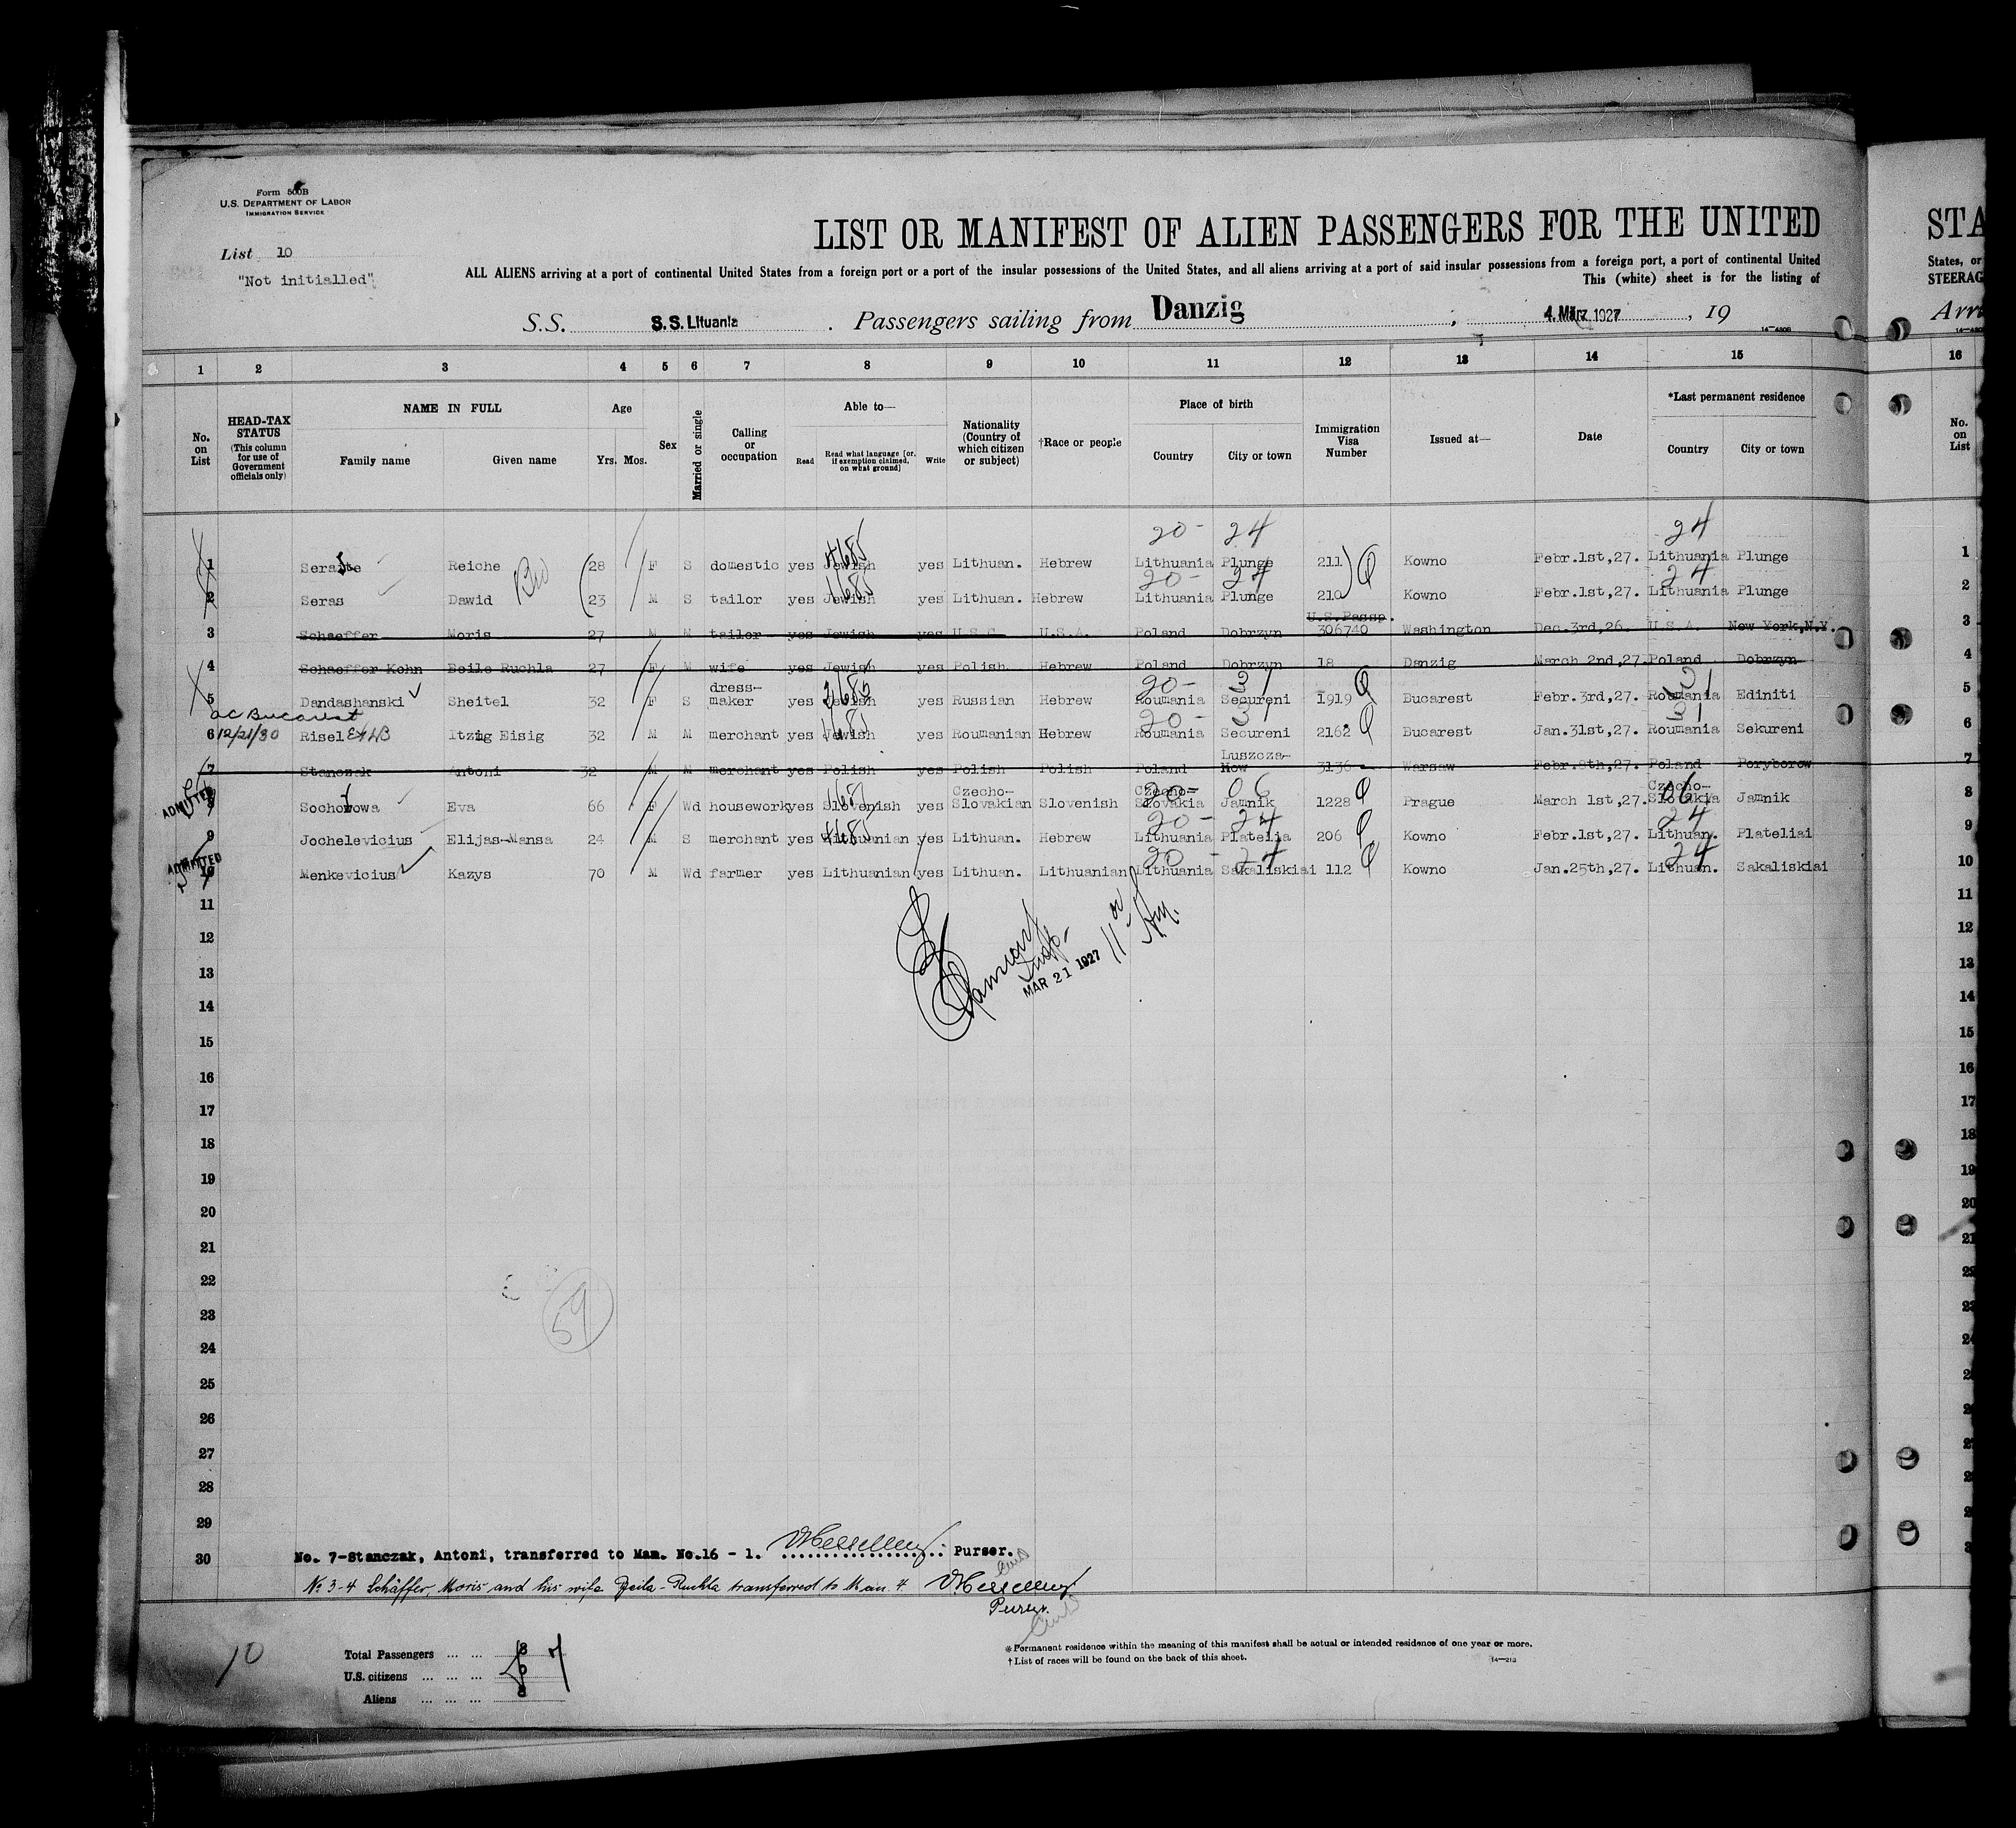 Form 500B
U.S. DEPARTMENT OF LABOR
IMMIGRATION SERVICE
List 10
"Not initialled"
LIST OR MANIFEST OF ALIEN PASSENGERS FOR THE UNITED
ALL ALIENS arriving at a port of continental United States from a foreign port or a port of the insular possessions of the United States, and all aliens arriving at a port of said insular possessions from a foreign port, a port of continental United
This (white) sheet is for the listing of
S.S. S.S. Lituania. Passengers sailing from Danzig, 4. März 1927, 19
14—480B
1 2 3 4 5 6 7 8 9 10 11 12 13 14 15
No. on List
HEAD-TAX STATUS (This column for use of Government officials only)
NAME IN FULL
Family name Given name
Age
Yrs. Mos.
Sex
Married or single
Calling or occupation
Able to—
Read Read what language [or, if exemption claimed, on what ground] Write
Nationality (Country of which citizen or subject)
†Race or people
Place of birth
Country City or town
Immigration Visa Number
Issued at—
Date
*Last permanent residence
Country City or town
20- 24 24
1 Seraite Reiche 28 F S domestic yes Jewish yes Lithuan. Hebrew Lithuania Plunge 211 Kowno Febr.1st,27. Lithuania Plunge
20- 24 24
2 Seras Dawid 23 M S tailor yes Jewish yes Lithuan. Hebrew Lithuania Plunge 210 Kowno Febr.1st,27. Lithuania Plunge
U.S.Passp.
3 Schaeffer Moris 27 M M tailor yes Jewish yes U.S.C. U.S.A. Poland Dobrzyn 306740 Washington Dec.3rd,26. U.S.A. New York,N.Y.
4 Schaeffer Kohn Beile Ruchla 27 F M wife yes Jewish yes Polish Hebrew Poland Dobrzyn 18 Danzig March 2nd,27. Poland Dobrzyn
20- 31 31
5 Dandashanski Sheitel 32 F S dress-maker yes Jewish yes Russian Hebrew Roumania Secureni 1919 Bucarest Febr.3rd,27. Roumania Ediniti
ac Bucarest
20- 31 31
6 12/21/30 Risel Itzig Eisig 32 M M merchant yes Jewish yes Roumanian Hebrew Roumania Secureni 2162 Bucarest Jan.31st,27. Roumania Sekureni
7 Stanczak Antoni 32 M M merchant yes Polish yes Polish Polish Poland Luszcza-now 3136 Warsaw Febr.8th,27. Poland Poryborow
ADMITTED
20- 06 06
8 Sochorowa Eva 66 F Wd housework yes Slovenish yes Czecho-Slovakian Slovenish Czecho-Slovakia Jamnik 1228 Prague March 1st,27. Czecho-Slovakia Jamnik
20- 24 24
9 Jochelevicius Elijas-Mansa 24 M S merchant yes Lithuanian yes Lithuan. Hebrew Lithuania Platelia 206 Kowno Febr.1st,27. Lithuan. Plateliai
ADMITTED
20- 24 24
10 Menkevicius Kazys 70 M Wd farmer yes Lithuanian yes Lithuan. Lithuanian Lithuania Sakaliskiai 112 Kowno Jan.25th,27. Lithuan. Sakaliskiai
11
12
MAR 21 1927
13
14
15
16
17
18
19
20
21
22
23
59
24
25
26
27
28
29
30
No. 7-Stanczak, Antoni, transferred to Man. No.16 - 1. Purser.
No 3-4 Schäffer, Moris and his wife Beila-Ruchla transferred to Man. 4
Purser.
10
Total Passengers 8 7
U.S. citizens
Aliens 8
*Permanent residence within the meaning of this manifest shall be actual or intended residence of one year or more.
†List of races will be found on the back of this sheet.
14—213
STA
States, or
STEERAG
Arri
16
No. on List
1
2
3
4
5
6
7
8
9
10
11
12
13
14
15
16
17
18
19
20
21